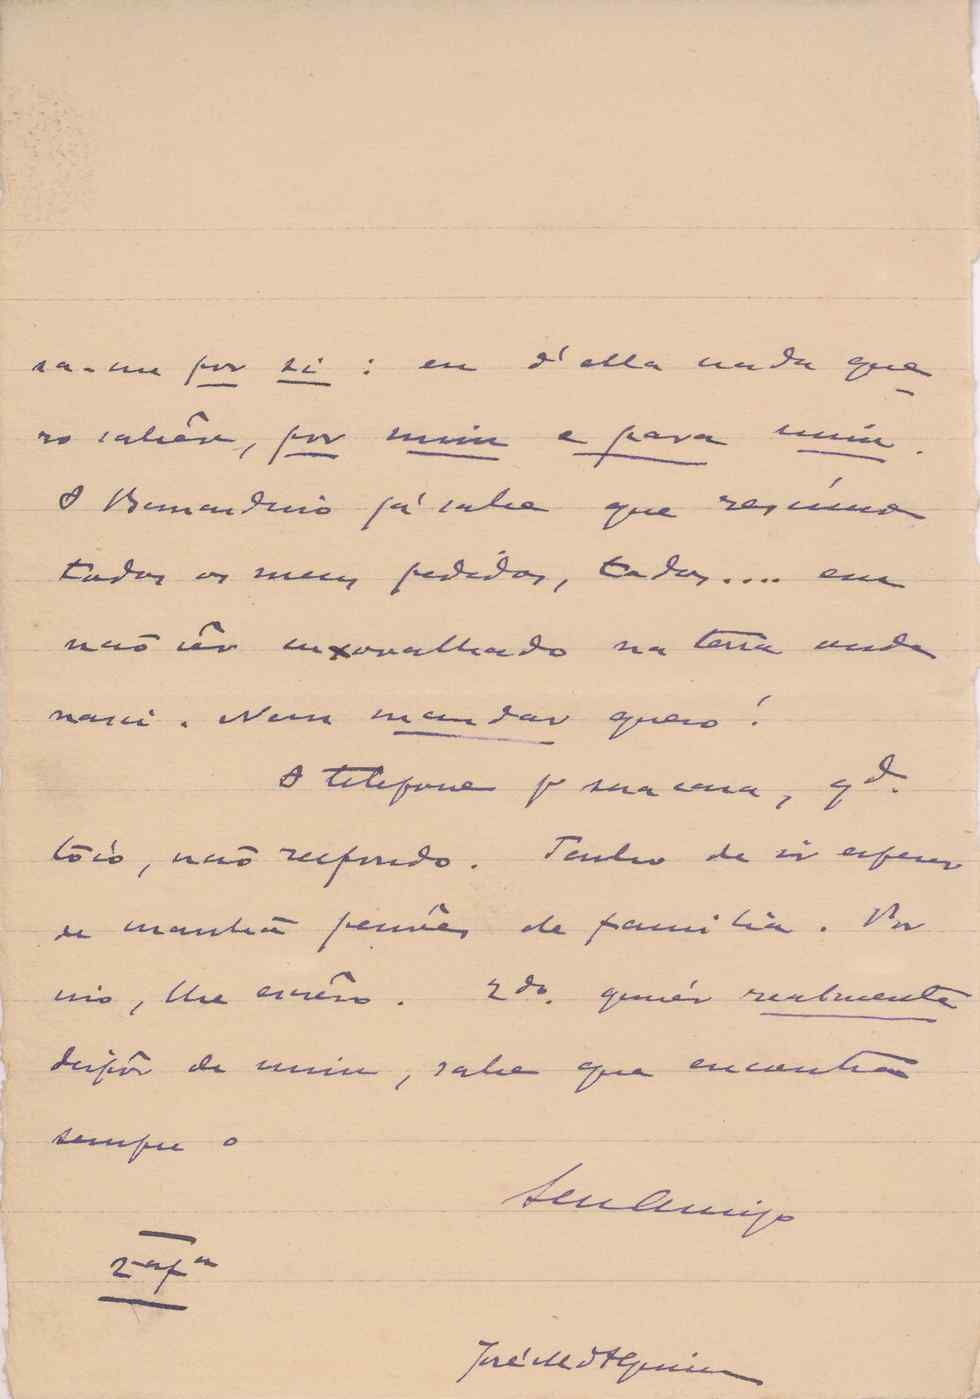 sa-me por si : eu d'ella nada que
ro sabêr, por mim e para mim.
O Bernardino já sabe que resúmo
todos os meus pedidos, todos.... em
não sêr enxovalhado na terra onde
nasci. Nem mandar quero!
O telefone p sua casa, qd.
tóco, não responde. Tenho de ir esperar
de manhã pessôas de familia. Por
isso, lhe escrêvo. Qdo. quizér realmente
dispôr de mim, sabe que encontra
sempre o
Seu Amigo
2ª fª
José M d'